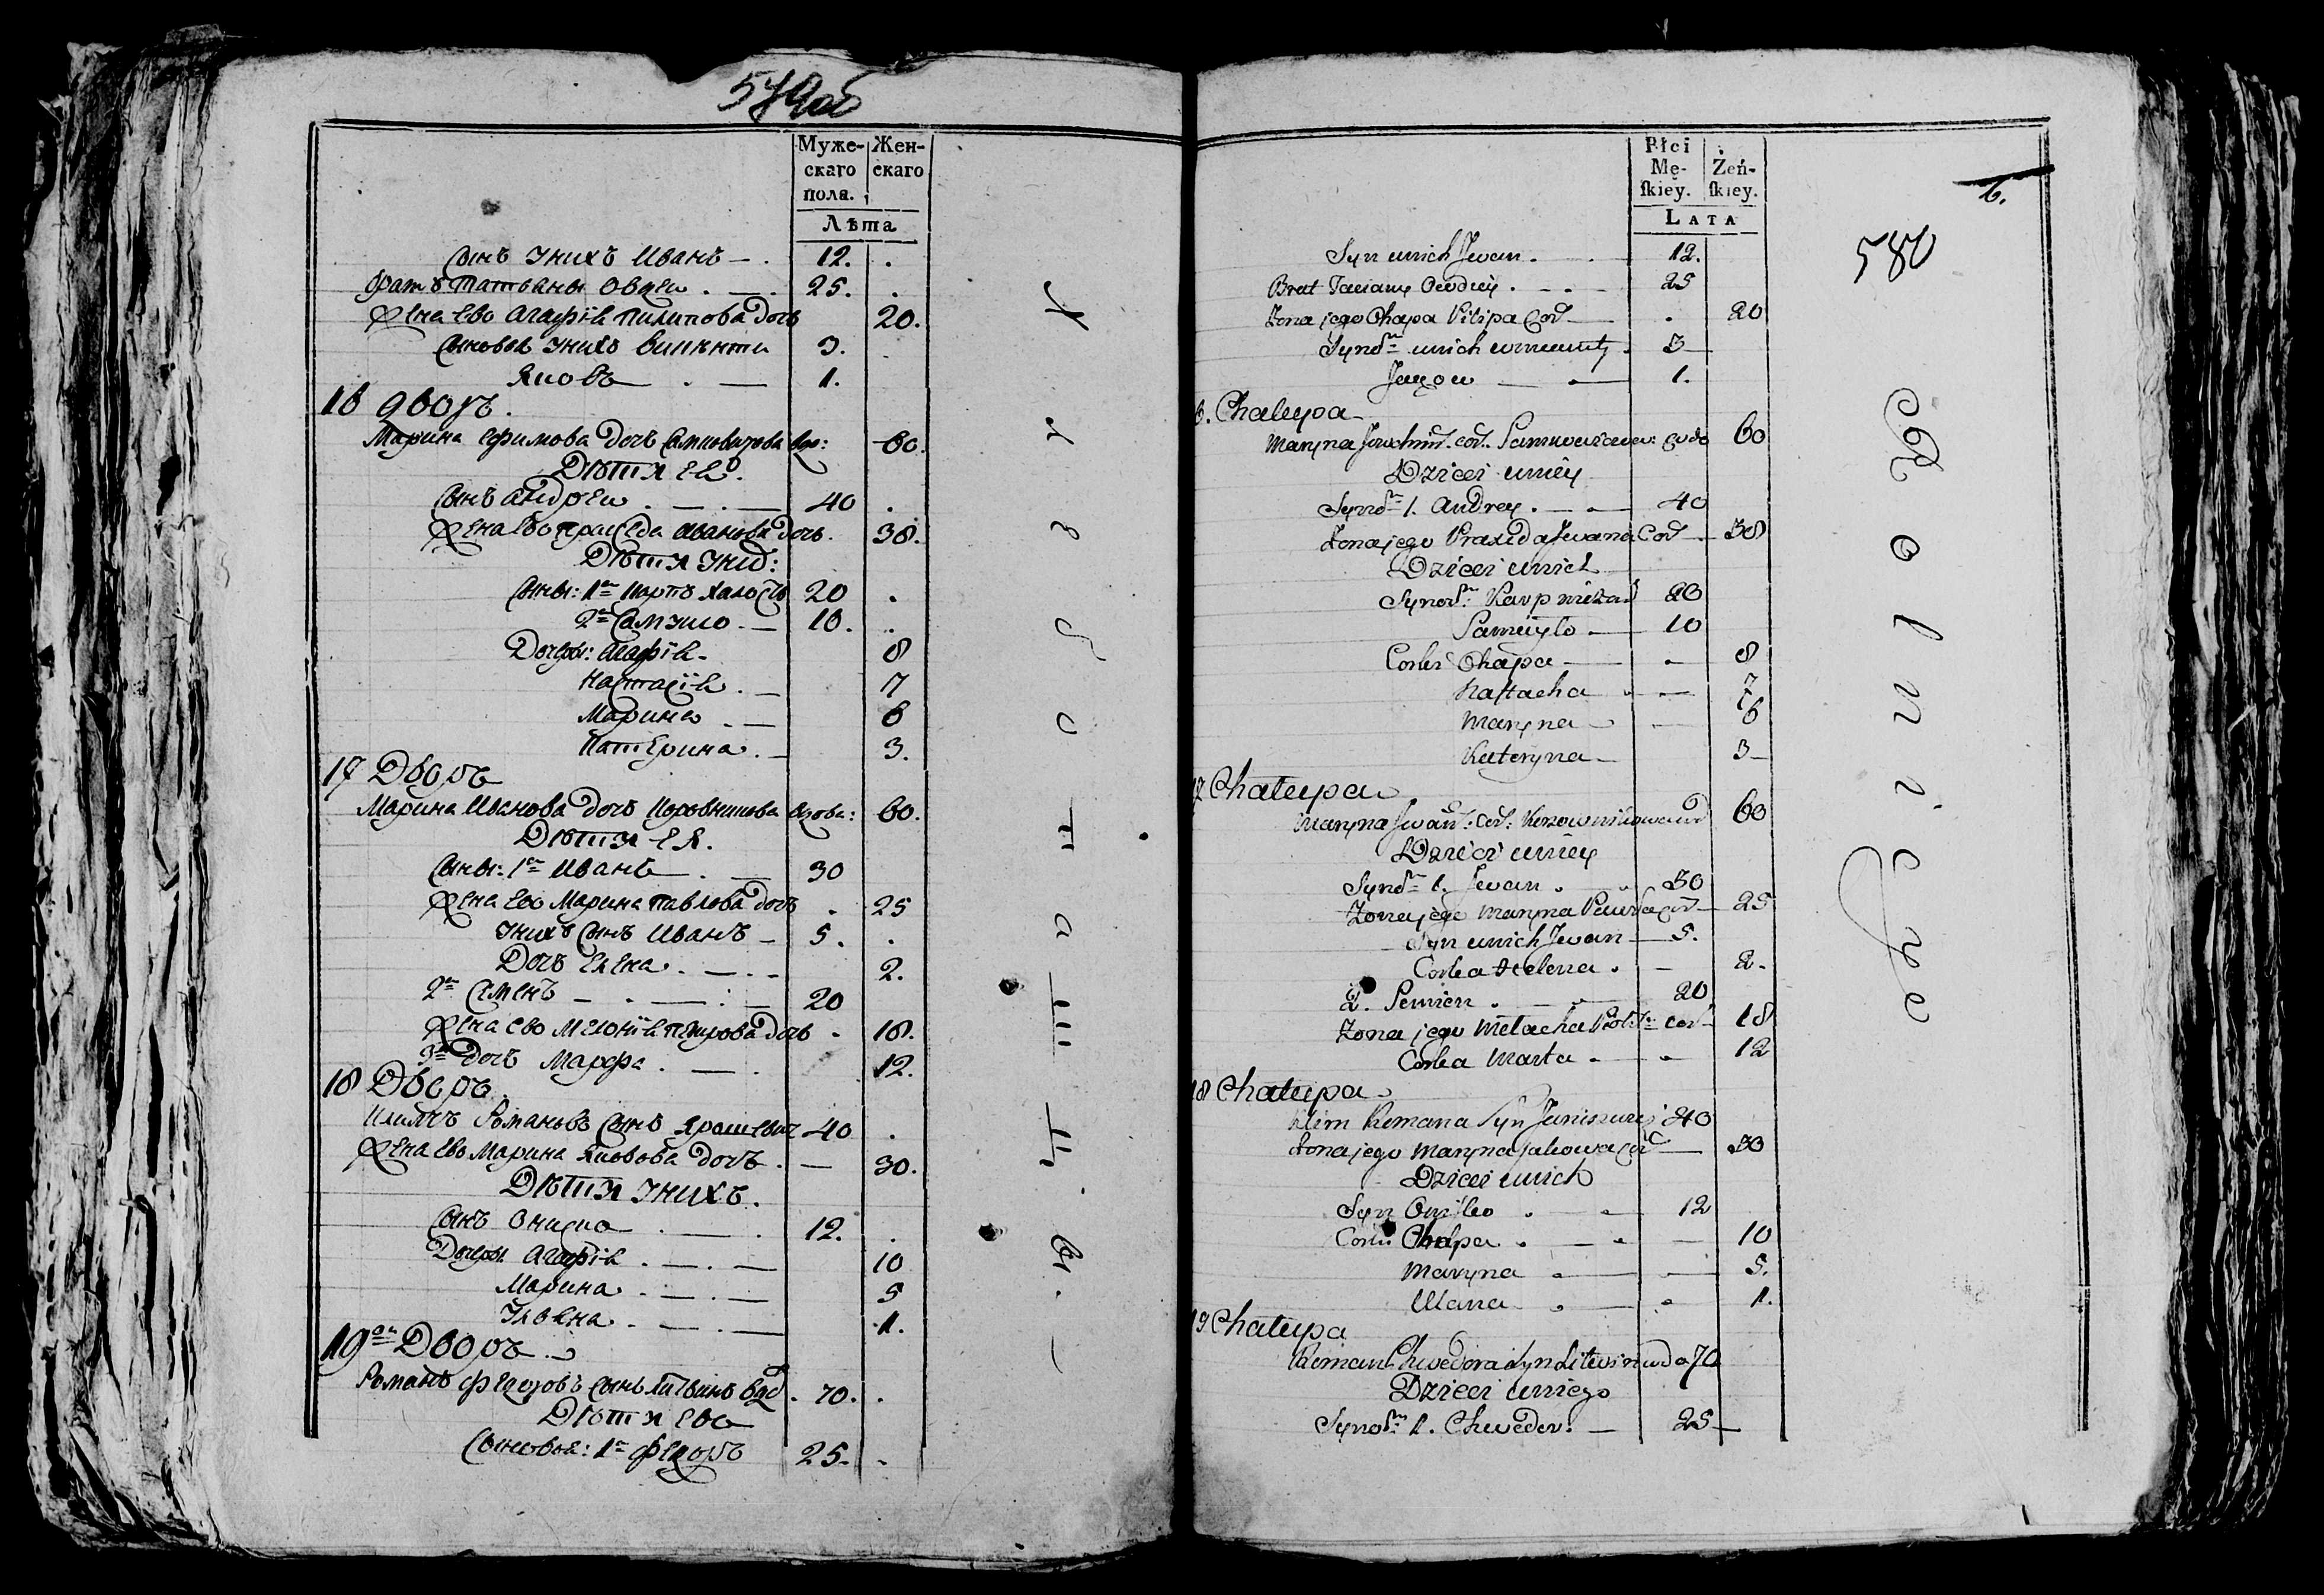 579об
Муже-
скаго
пола.
Жен-
скаго
Лѣта
Сынъ Унихъ Иванъ 12.
Братъ Татьяны Овдеи 25.
Жена Ево Агафія Пилипова Дочь 20.
Сыновья Унихъ Винценты 3.
Яковъ 1.
16 дворъ.
Марина Ефимова Дочь 60.
Дѣти Ея.
Сынъ Андреи 40
Жена Ево Праседа Иванова Дочь. 38.
Дѣти Унихъ:
Сыны: 1й Карпъ Холостъ 20
2й Самуило 10.
Дочеры: Агафія 8
Настасія 7
Марина 6
Катерина 3.
17 Дворъ
Марина Иванова Дочь Коровникова Вдова: 60.
Дѣти Ея.
Сыны: 1й Иванъ 30
Жена Ево Марина Павлова Дочь 25
Унихъ Сынъ Иванъ 5.
Дочь Елена 2.
2й Сименъ 20
Жена Ево Меланія Петрова Дочь 18.
3я Дочь Марфа 12.
18 Дворъ
Климъ Романовъ Сынъ 40
Жена Ево Марина Яковова Дочь 30.
Дѣти Унихъ.
Сынъ Ониско 12.
Дочеры Агафія 10
Марина 5
Ульяна 1.
19й Дворъ
Романъ Федоровъ Сынъ Литвинъ Вдо 70.
Дѣти Ево
Сыновья: 1й Федоръ 25.
Хлебопашцы.
6.
580
Płci
Mę-
ſkiey.
Żeń-
ſkiey.
LATA
Syn unich Jwan 12.
Brat Taciany Owdiey 25
Żona jego Ohapa Pilipa Cor 20
Synów unich 3
Jakow 1.
6. Chałupa
Maryna 60
Dzieci uniey
Synów 1. Andrey 40
Żona jego Praxeda Jwana Cor 38
Dzieci unich
Synów Karp nieżon 20
Samuyło 10
Corki Ohapa 8
Nastacha 7
Maryna 6
Kateryna 3
17 Chałupa
Maryna Jwan: Cor: 60
Dzieci uniey
Synów 1. Jwan 30
Żona jego Maryna Pawła Cor 25
Syn unich Jwan 5.
Corka Helena 2.
2. Semien 20
Żona jego Mełacha Cor 18
Corka Marta 12
18 Chałupa
Klim Romana Syn 40
Żona jego Maryna Jakowa Cor 30
Dzieci unich
Syn Onisko 12
Corki Ohapa 10
Maryna 5.
Ulana 1.
19 Chałupa
Roman Chwedora Syn Litwin wdo 70
Dzieci uniego
Synów 1. Chwedor. 25
Rolnicy